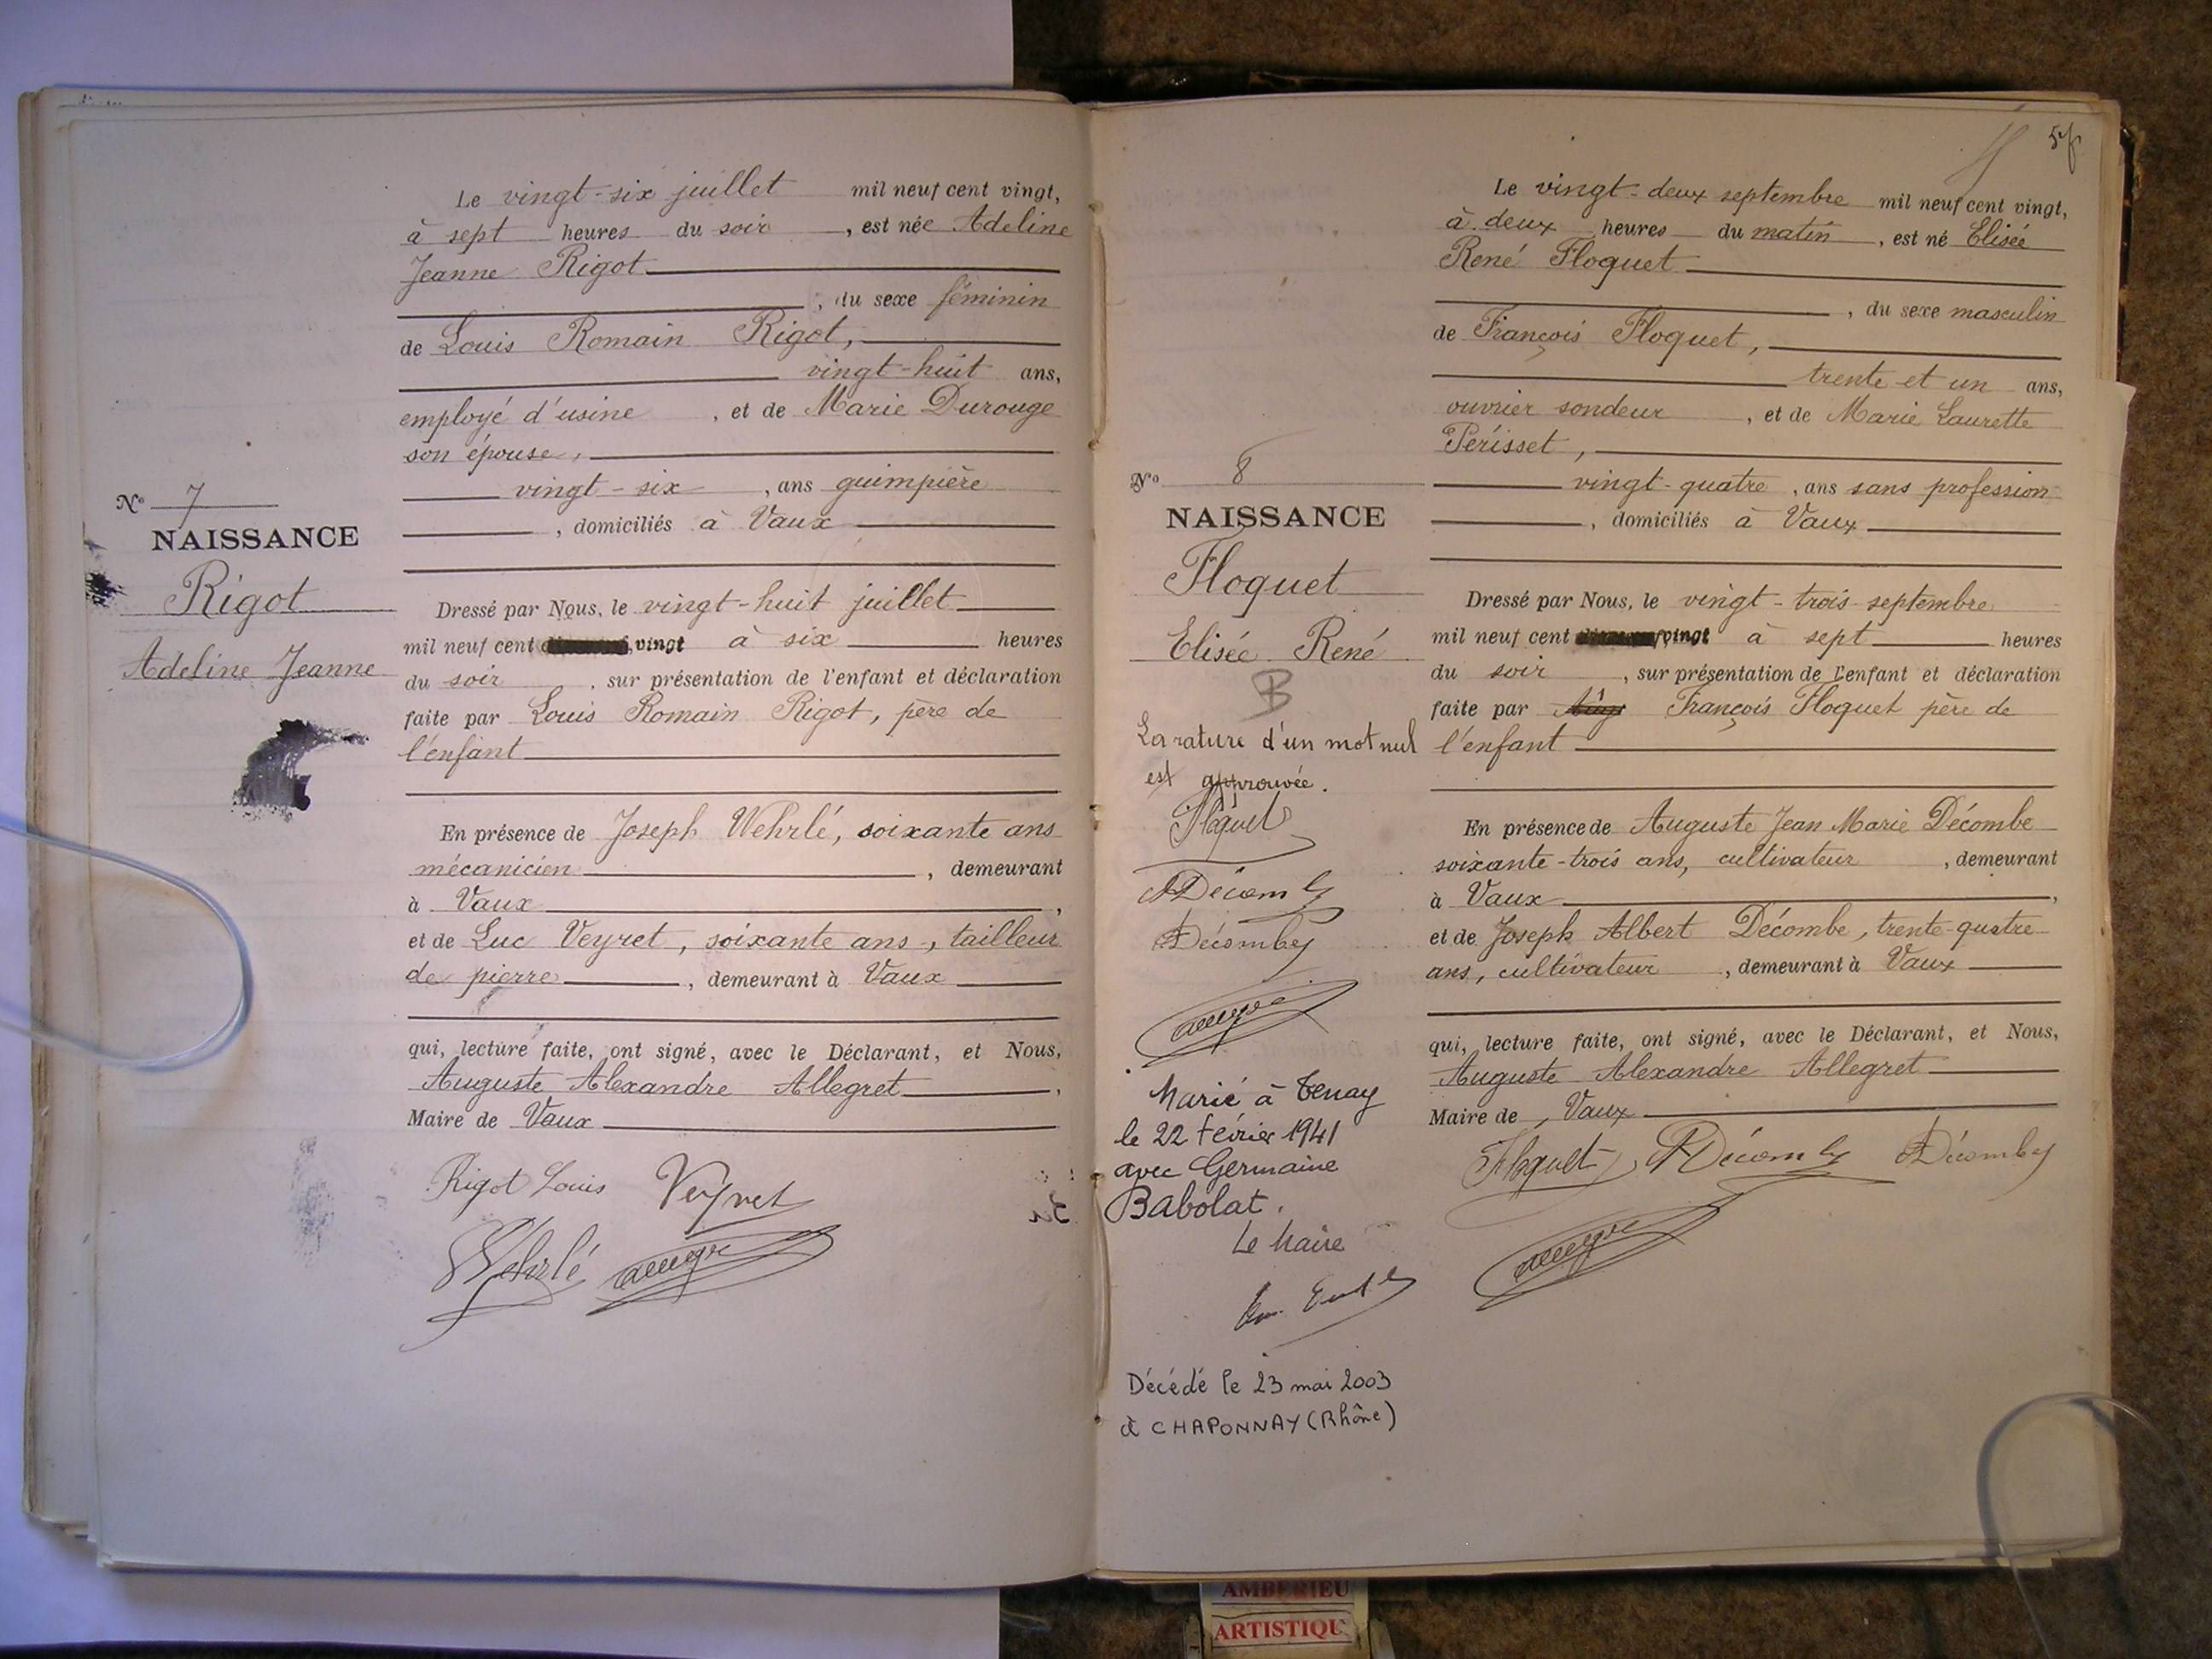 Le vingt-six juillet mil neuf cent vingt,
à sept heures du soir, est née Adeline
Jeanne Rigot
, du sexe féminin
de Louis Romain Rigot,
vingt-huit ans,
employé d'usine, et de Marie Durouge
son épouse,
vingt-six, ans guimpière
, domiciliés à Vaux
N° 7
NAISSANCE
Rigot
Adeline Jeanne
Dressé par Nous, le vingt-huit juillet
mil neuf cent vingt à six heures
du soir, sur présentation de l'enfant et déclaration
faite par Louis Romain Rigot, père de
l'enfant
En présence de Joseph Wehrlé, soixante ans
mécanicien, demeurant
à Vaux,
et de Luc Veyret, soixante ans, tailleur
de pierre, demeurant à Vaux
qui, lecture faite, ont signé, avec le Déclarant, et Nous,
Auguste Alexandre Allegret,
Maire de Vaux
Rigot Louis Veyret
Wehrlé
Le vingt-deux septembre mil neuf cent vingt,
à deux heures du matin, est né Elisée
René Floquet
, du sexe masculin
de François Floquet,
trente et un ans,
ouvrier sondeur, et de Marie Laurette
Périsset,
vingt-quatre, ans sans profession
, domiciliés à Vaux
N° 8
NAISSANCE
Floquet
Elisée René
B
La rature d'un mot nul
est approuvée.
Floquet
ADécomby
Décomby
Marié à Tenay
le 22 février 1941
avec Germaine
Babolat.
Le Maire
Décédé le 23 mai 2003
à CHAPONNAY (Rhône)
Dressé par Nous, le vingt-trois septembre
mil neuf cent vingt à sept heures
du soir, sur présentation de l'enfant et déclaration
faite par François Floquet père de
l'enfant
En présence de Auguste Jean Marie Décombe
soixante-trois ans, cultivateur, demeurant
à Vaux,
et de Joseph Albert Décombe, trente-quatre
ans, cultivateur, demeurant à Vaux
qui, lecture faite, ont signé, avec le Déclarant, et Nous,
Auguste Alexandre Allegret
Maire de, Vaux
Floquet ADécomby Décomby
AMBERIEU
ARTISTIQU